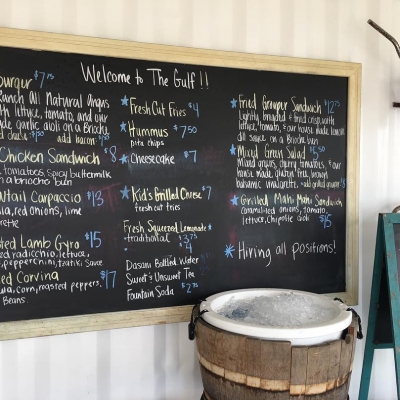 Welcome to The Gulf!!
burger $7.75
Ranch All Natural Angus
with lettuce, tomato, and our
garlic aioli on a Brioche
add bacon
Chicken Sandwich $8
tomatoes, Spicy buttermilk
on a brioche bun
tail Carpaccio $13
red onions, lime
Lamb Gyro $15
radicchio, lettuce,
pepperchini, tzatiki Sauce
Corvina $17
corn, roasted peppers,
Beans.
Fresh Cut Fries $4
Hummus $7.50
pita chips
Cheesecake $7
Kid's Grilled Cheese $7
fresh cut fries
Fresh Squeezed Lemonade
traditional
Dasani Bottled Water
Sweet & Unsweet Tea
Fountain Soda
Fried Grouper Sandwich
Lightly breaded & fried crisp with
lettuce, tomato, & our house made lemon
dill sauce, on a Brioche bun
Mixed Green Salad
Mixed greens, cherry tomatoes, & our
house made, gluten free, brown
balsamic vinaigrette.
Grilled Mahi Mahi Sandwich
Caramelized onions, tomato,
lettuce, chipotle aioli $15
Hiring all positions!